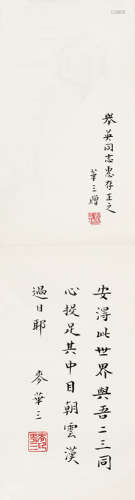 黎英同志惠存正之
華三贈
安得此世界與吾二三同
心投足其中目朝雲漢
過日耶 麥華三